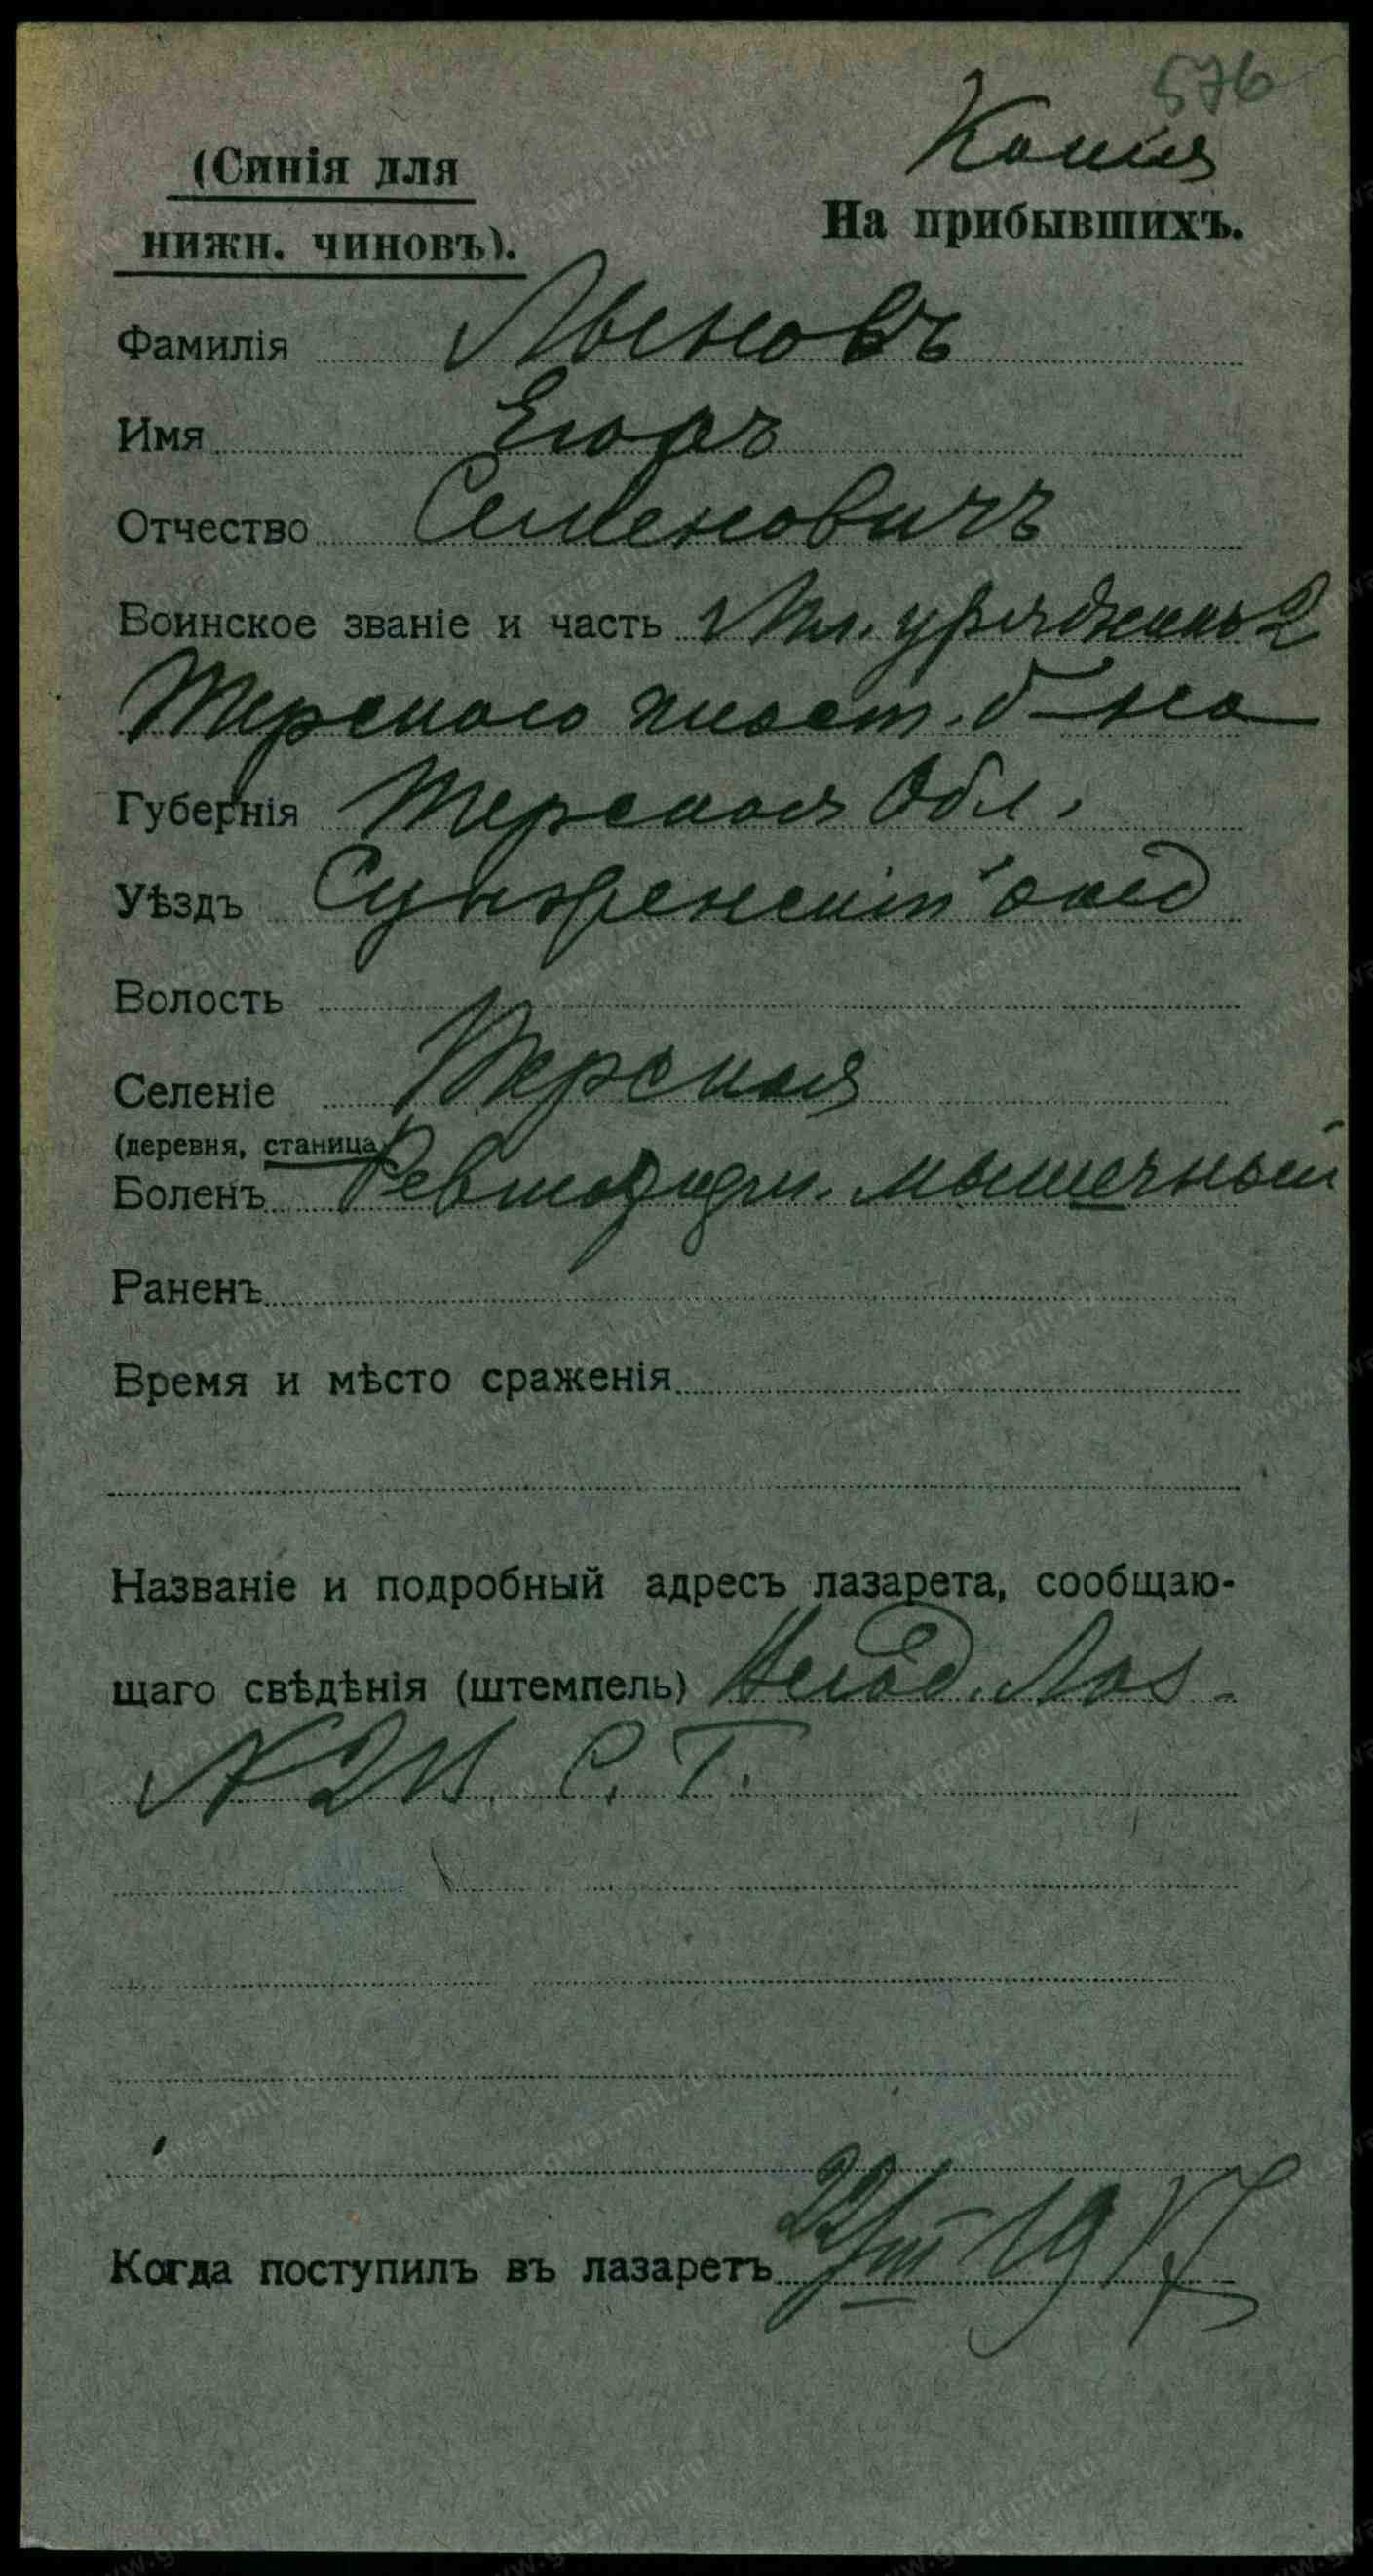 576
Копія
(Синія для
нижн. чиновъ).
На прибывшихъ.
Фамилія Лысновъ
Имя Егоръ
Отчество Семеновичъ
Воинское званіе и часть Мл. урядникъ 2
Терского пласт. б-на
Губернія Терская Обл.
Уѣздъ Сунженскій
Волость
Селеніе Терская
(деревня, станица)
Боленъ мышечный
Раненъ
Время и мѣсто сраженія
Названіе и подробный адресъ лазарета, сообщаю-
щаго свѣдѣнія (штемпель) Лаз.
С. Г.
Когда поступилъ въ лазаретъ 22/III 1917